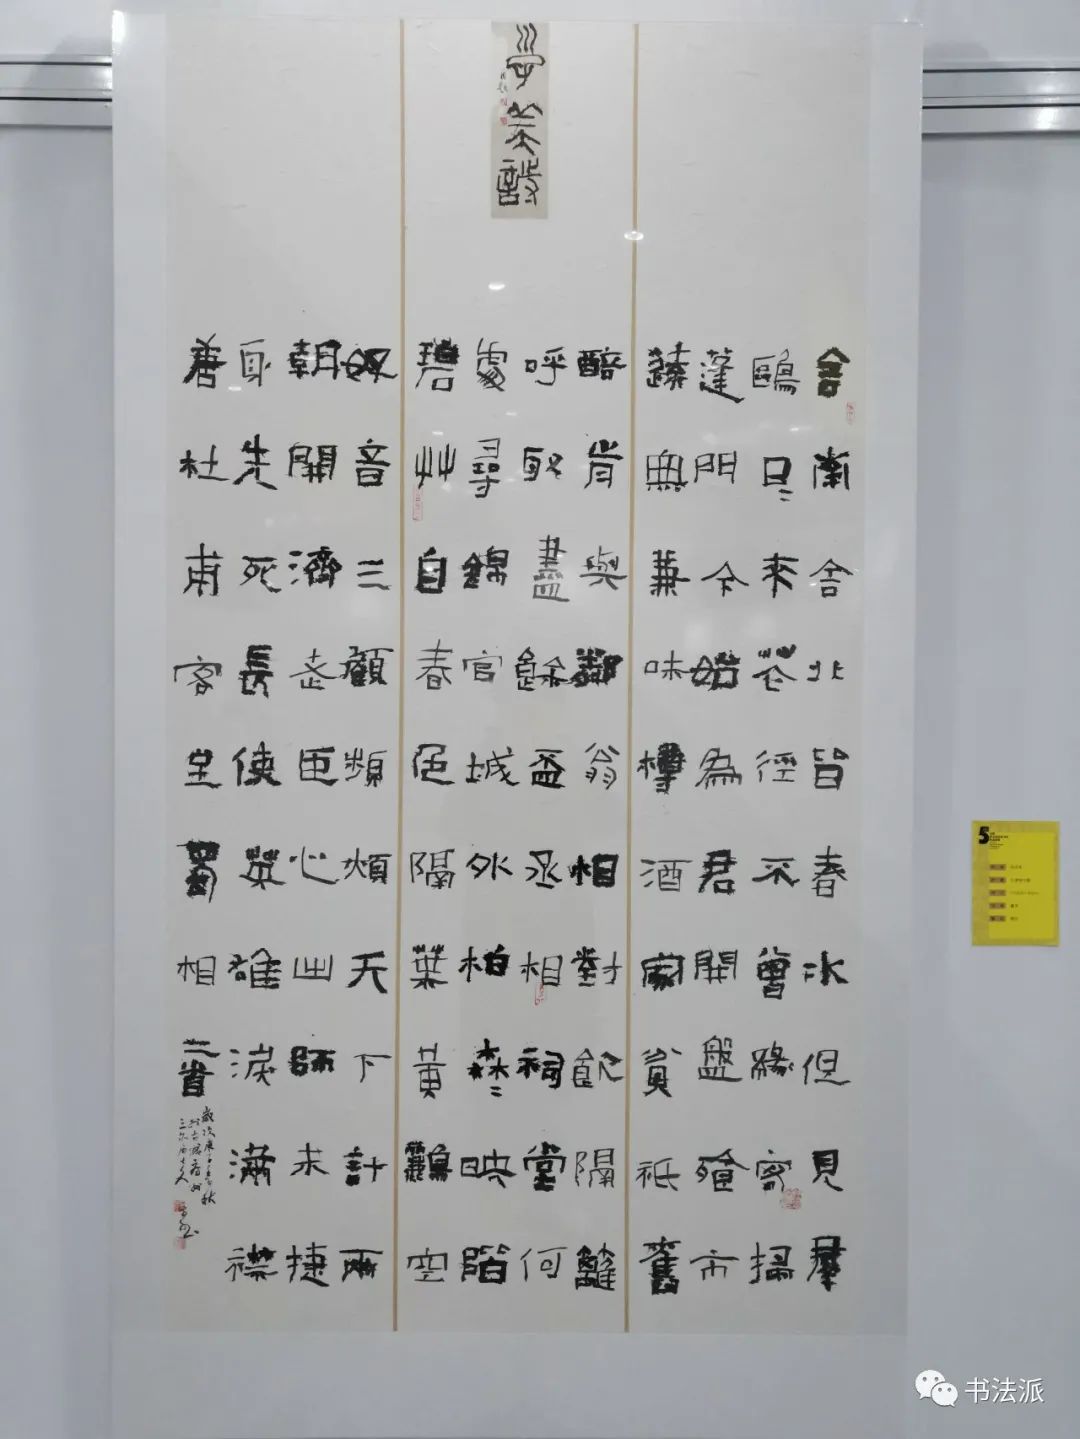 舍南舍北皆春水但見羣
鷗日〻來花徑不曾緣客掃
蓬門今始為君開盤飧市
遠無兼味樽酒家貧衹舊
醅肯與鄰翁相對飲隔籬
呼取盡餘盃丞相祠堂何
處尋錦官城外柏森〻映階
碧艸自春色隔葉黃鸝空
好音三顧頻煩天下計兩
朝開濟老臣心出師未捷
身先死長使英雄淚滿襟
唐杜甫客至蜀相二首
歲次庚子秋
5
书法派